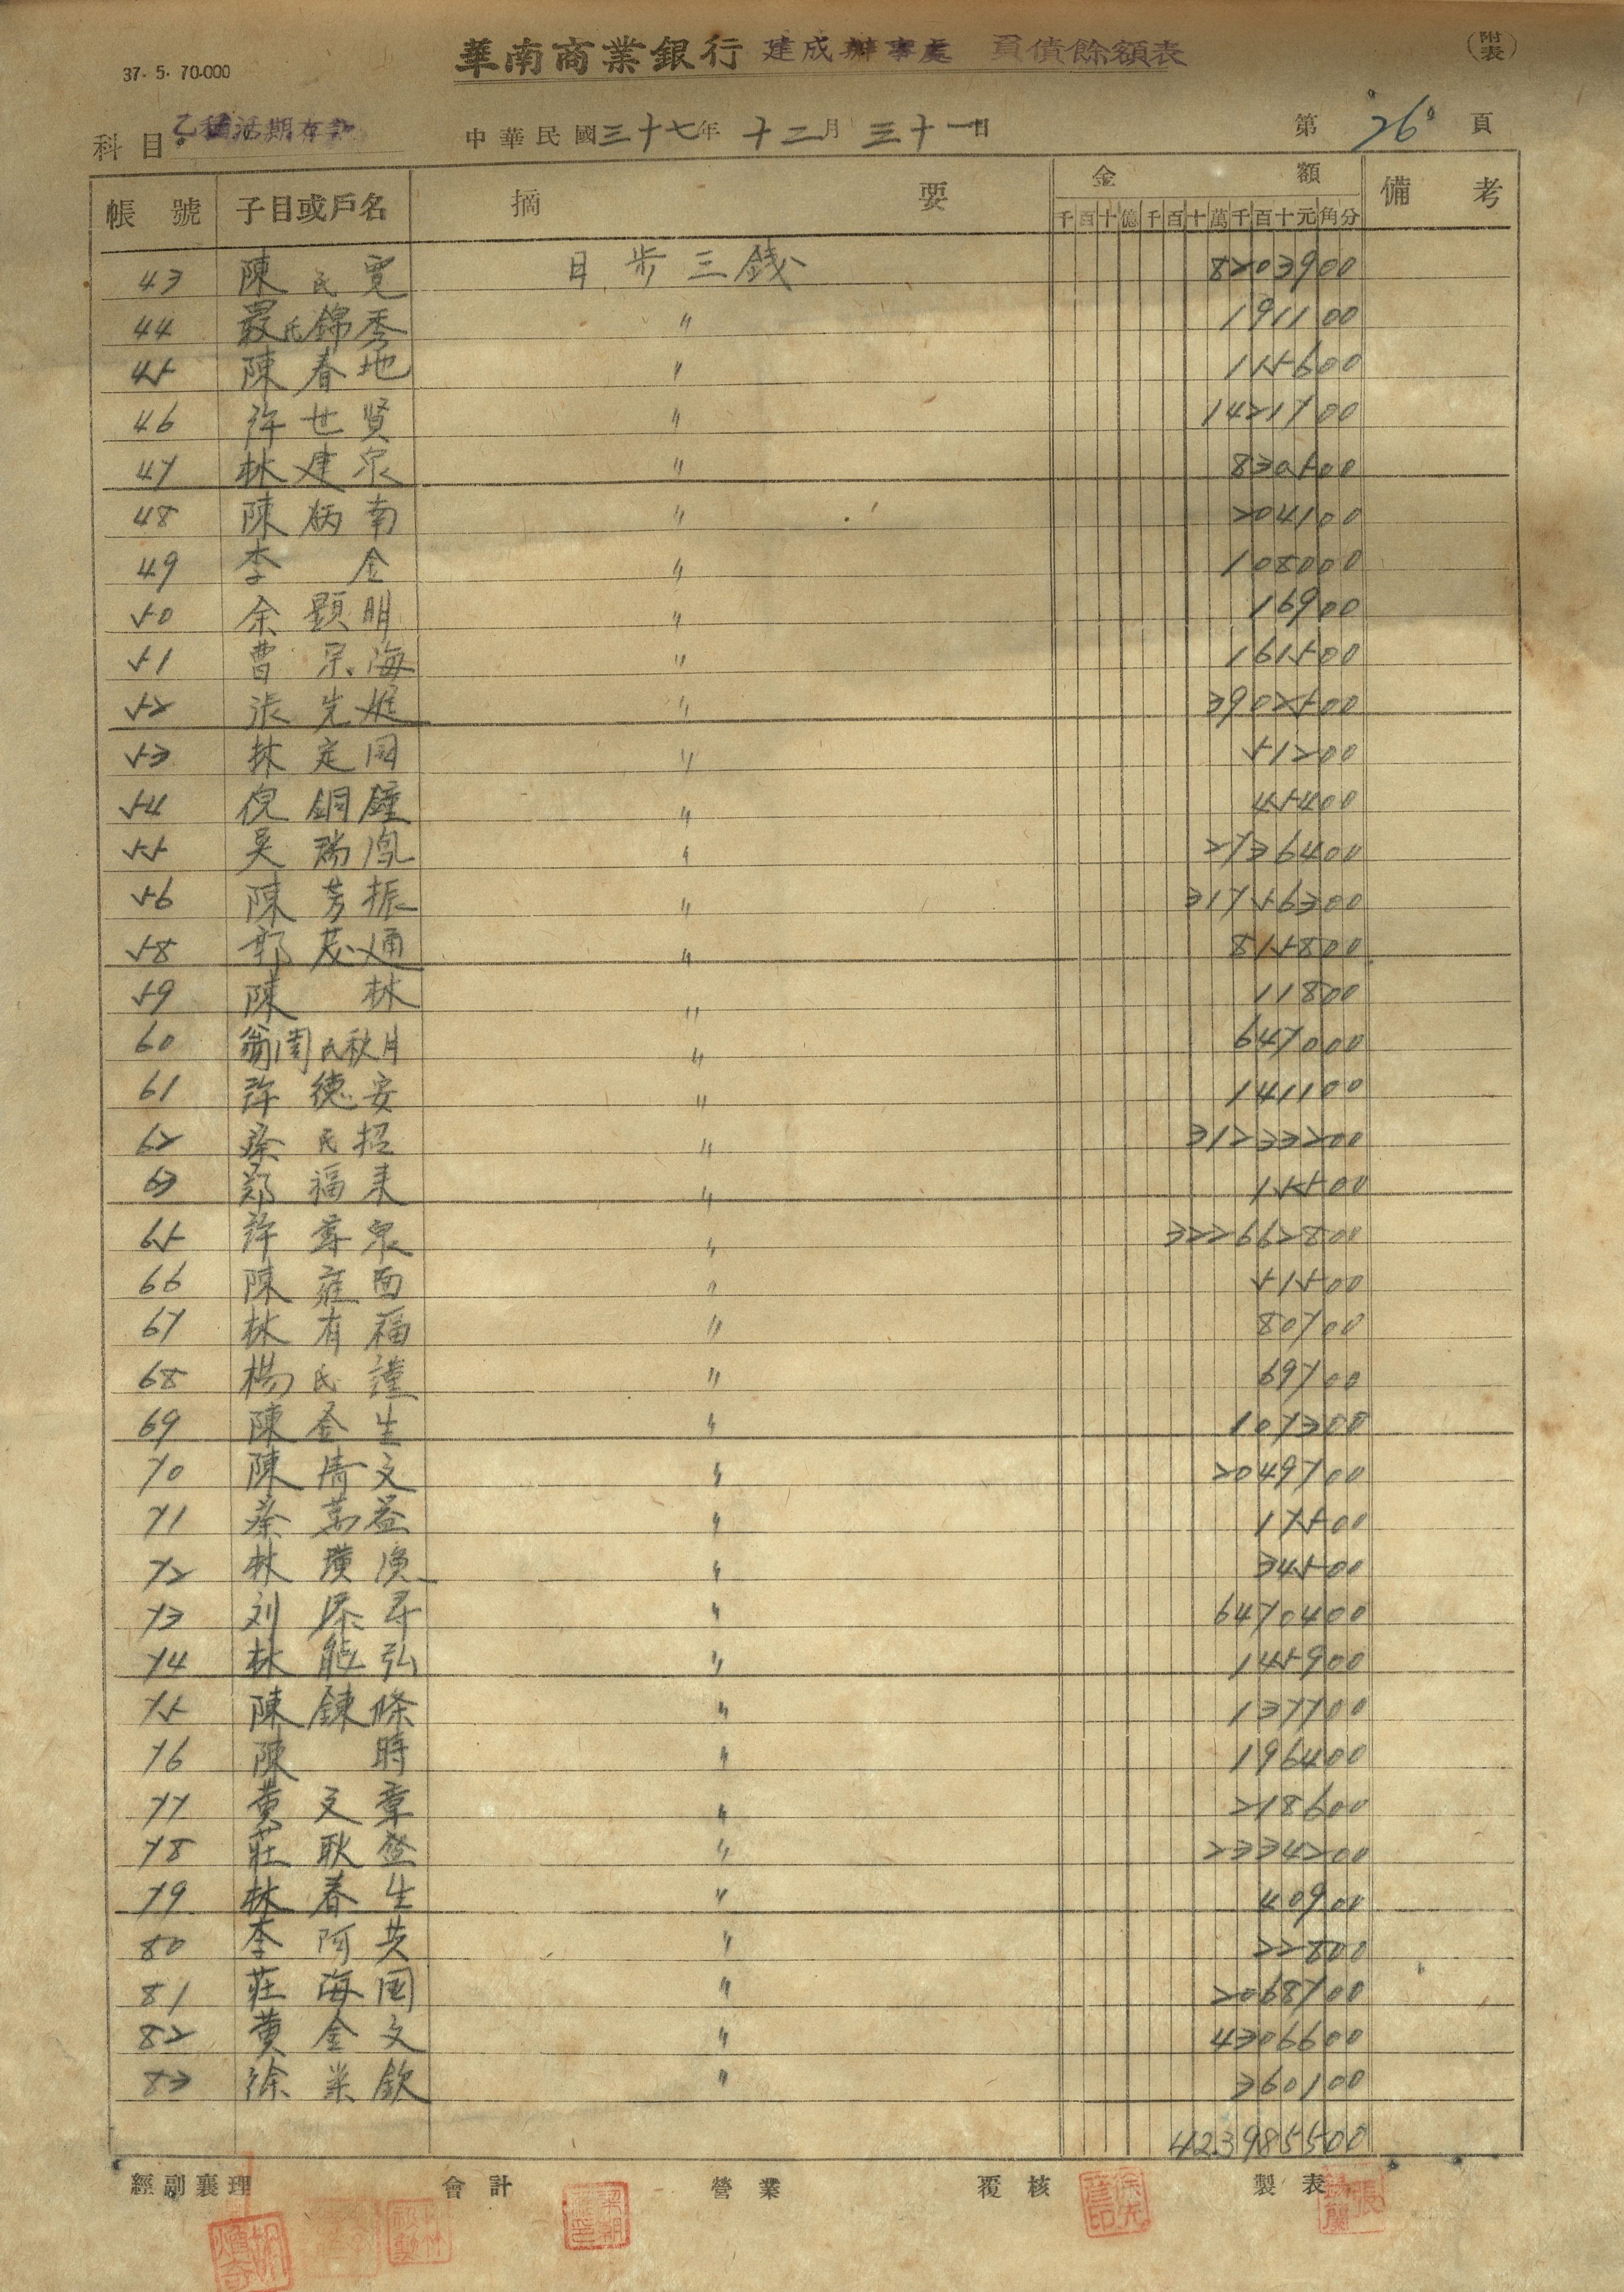 37. 5. 70.000
華南商業銀行 建成辦事處 負債餘額表
(附表)
科目 乙種活期存款
中華民國三十七年 十二月 三十一日
第 26 頁
帳號 子目或戶名 摘要 金額 備考
千百十億千百十萬千百十元角分
43 陳氏寛 日步三錢 8203900
44 嚴氏錦秀 〃 191100
45 陳春地 〃 115600
46 許世賢 〃 1421700
47 林建泉 〃 830500
48 陳炳南 〃 204100
49 李金 〃 108000
50 余顕明 〃 16900
51 曹宗海 〃 161500
52 張先 〃 3902500
53 林定国 〃 51200
54 倪銅鐘 〃 45400
55 吳瑞鳳 〃 2736400
56 陳芳振 〃 31756300
58 郭茂通 〃 815800
59 陳林 〃 11800
60 翁周氏秋月 〃 647000
61 許德安 〃 141100
62 蔡氏招 〃 31233200
63 鄭福来 〃 15500
65 許尊泉 〃 322662800
66 陳面 〃 51500
67 林有福 〃 80700
68 楊氏謹 〃 69700
69 陳金生 〃 107300
70 陳清文 〃 2049700
71 蔡萬益 〃 17500
72 林漢 〃 34500
73 刘添 〃 6470400
74 林能弘 〃 145900
75 陳鍊條 〃 137700
76 陳時 〃 196400
77 黄文章 〃 218600
78 莊耿登 〃 2334200
79 林春生 〃 40900
80 李阿英 〃 22800
81 莊海国 〃 2068700
82 黄金文 〃 4306600
83 徐業欽 〃 360100
423985500
經副襄理 會計 營業 覆核 製表